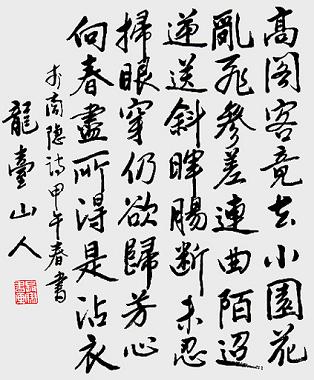 高閣客竟去小園花
亂飛參差連曲陌迢
遞送斜暉腸斷未忍
掃眼穿仍欲歸芳心
向春盡所得是沾衣
李商隱詩甲午春書
龍臺山人